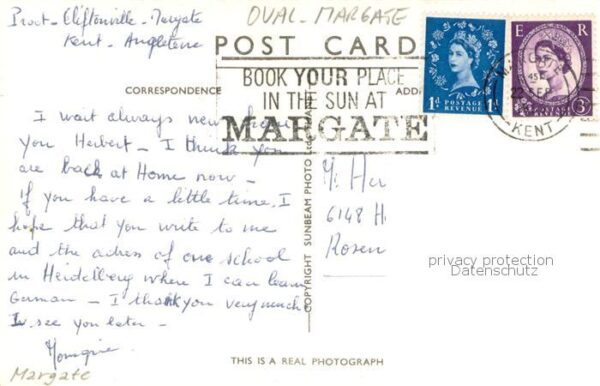 Cliftonville - Margate
Kent - Angleterre
OVAL - MARGATE
POST CARD
BOOK YOUR PLACE
IN THE SUN AT
MARGATE
CORRESPONDENCE
ADD
1d POSTAGE REVENUE 1d
E R
POSTAGE REVENUE 3d
KENT
I wait always new from
you Herbert - I think you
are back at Home now -
if you have a little time, I
hope that you write to me
and the adress of one school
in Heidelberg where I can learn
German - I thank you very much
see you later -
Monique
Margate
Her
6148 H
Rosen
COPYRIGHT SUNBEAM PHOTO Ltd.
privacy protection
Datenschutz
THIS IS A REAL PHOTOGRAPH